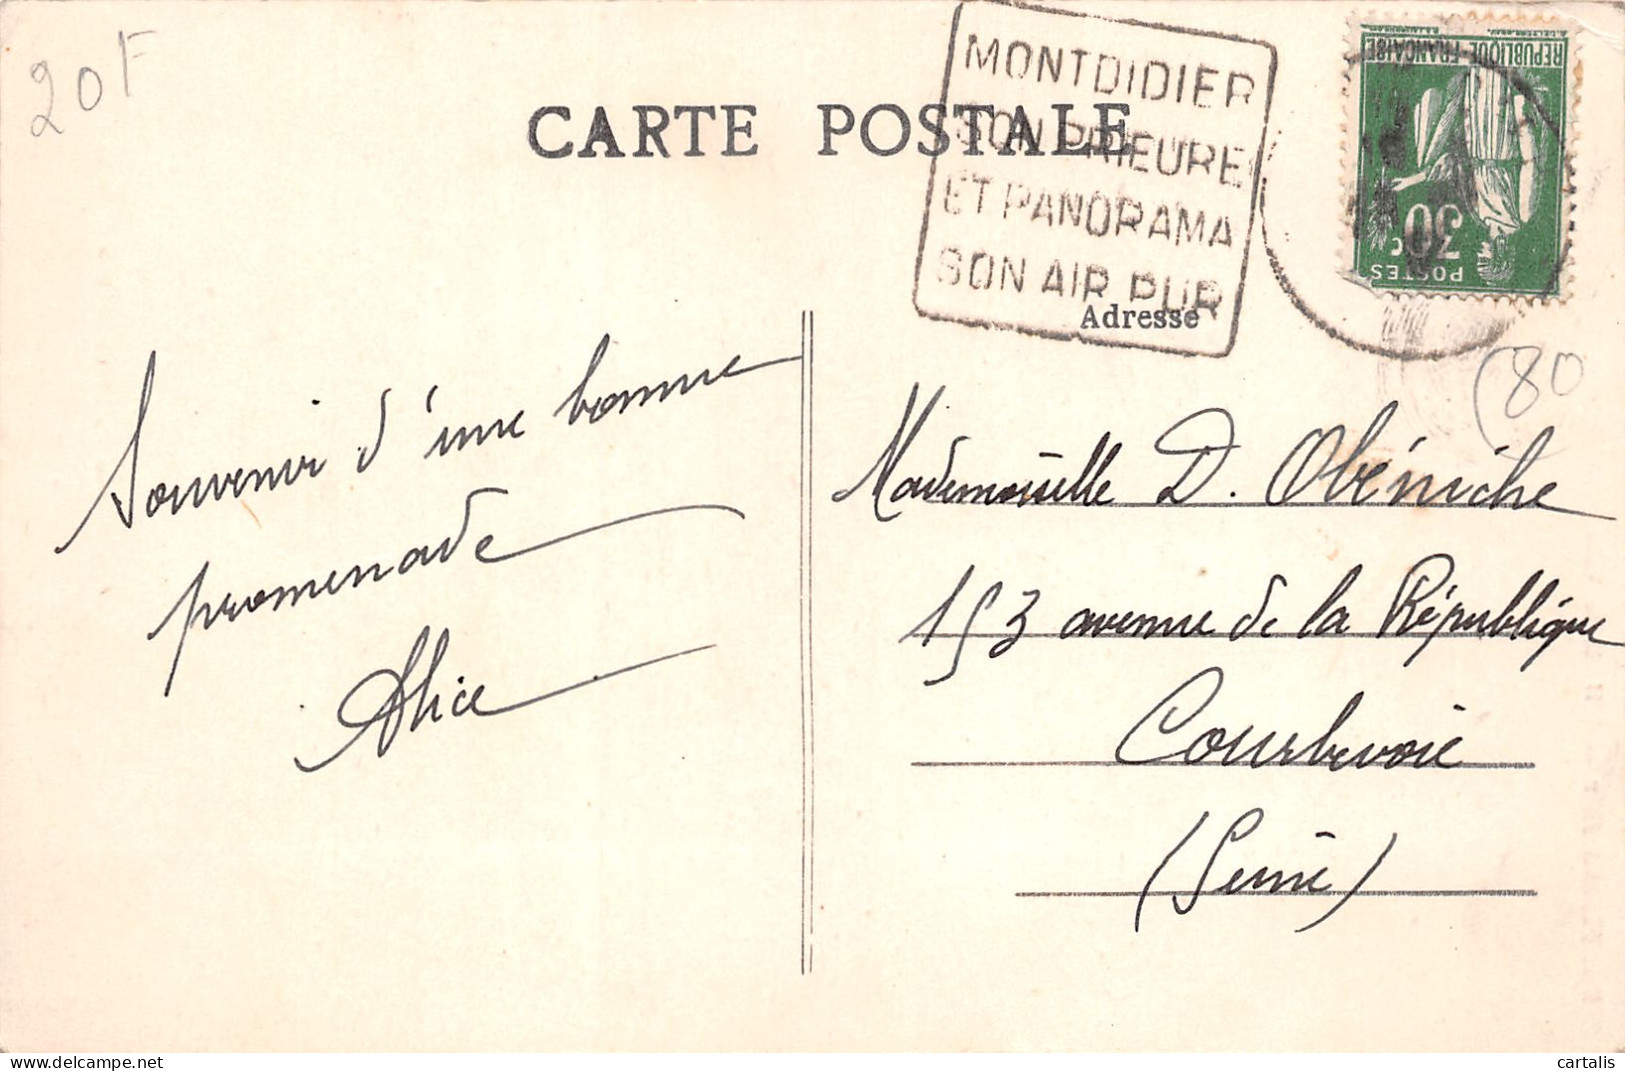 20F
CARTE POSTALE
MONTDIDIER
SON PRIEURE
ET PANORAMA
SON AIR PUR
REPUBLIQUE FRANÇAISE
30c
POSTES
Adresse
(80
Souvenir d'une bonne
promenade
Alice
Mademoiselle D. Obéniche
153 avenue de la République
Courbevoie
(Seine)
cartalis